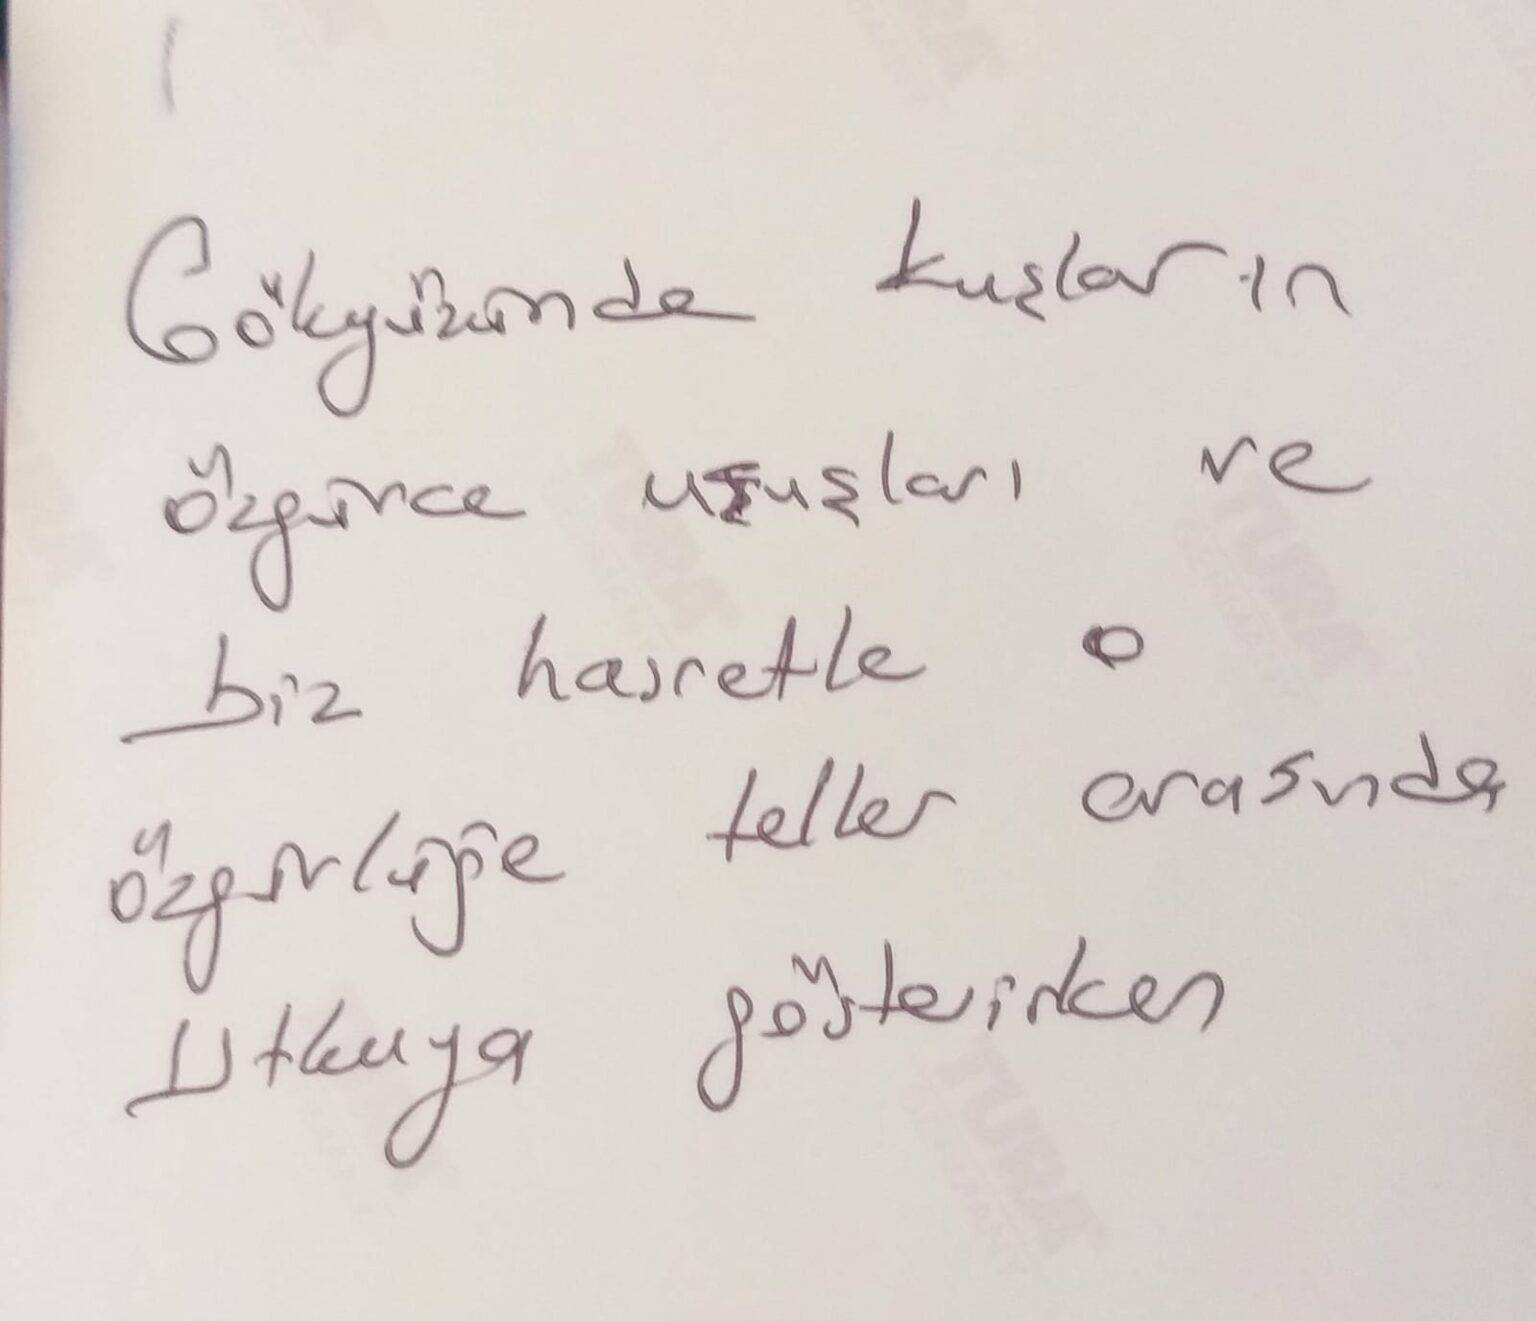 Gökyüzünde kuşların
özgürce uçuşları ve
biz hasretle o
özgürlüğe teller arasında
Utkuya gösterirken